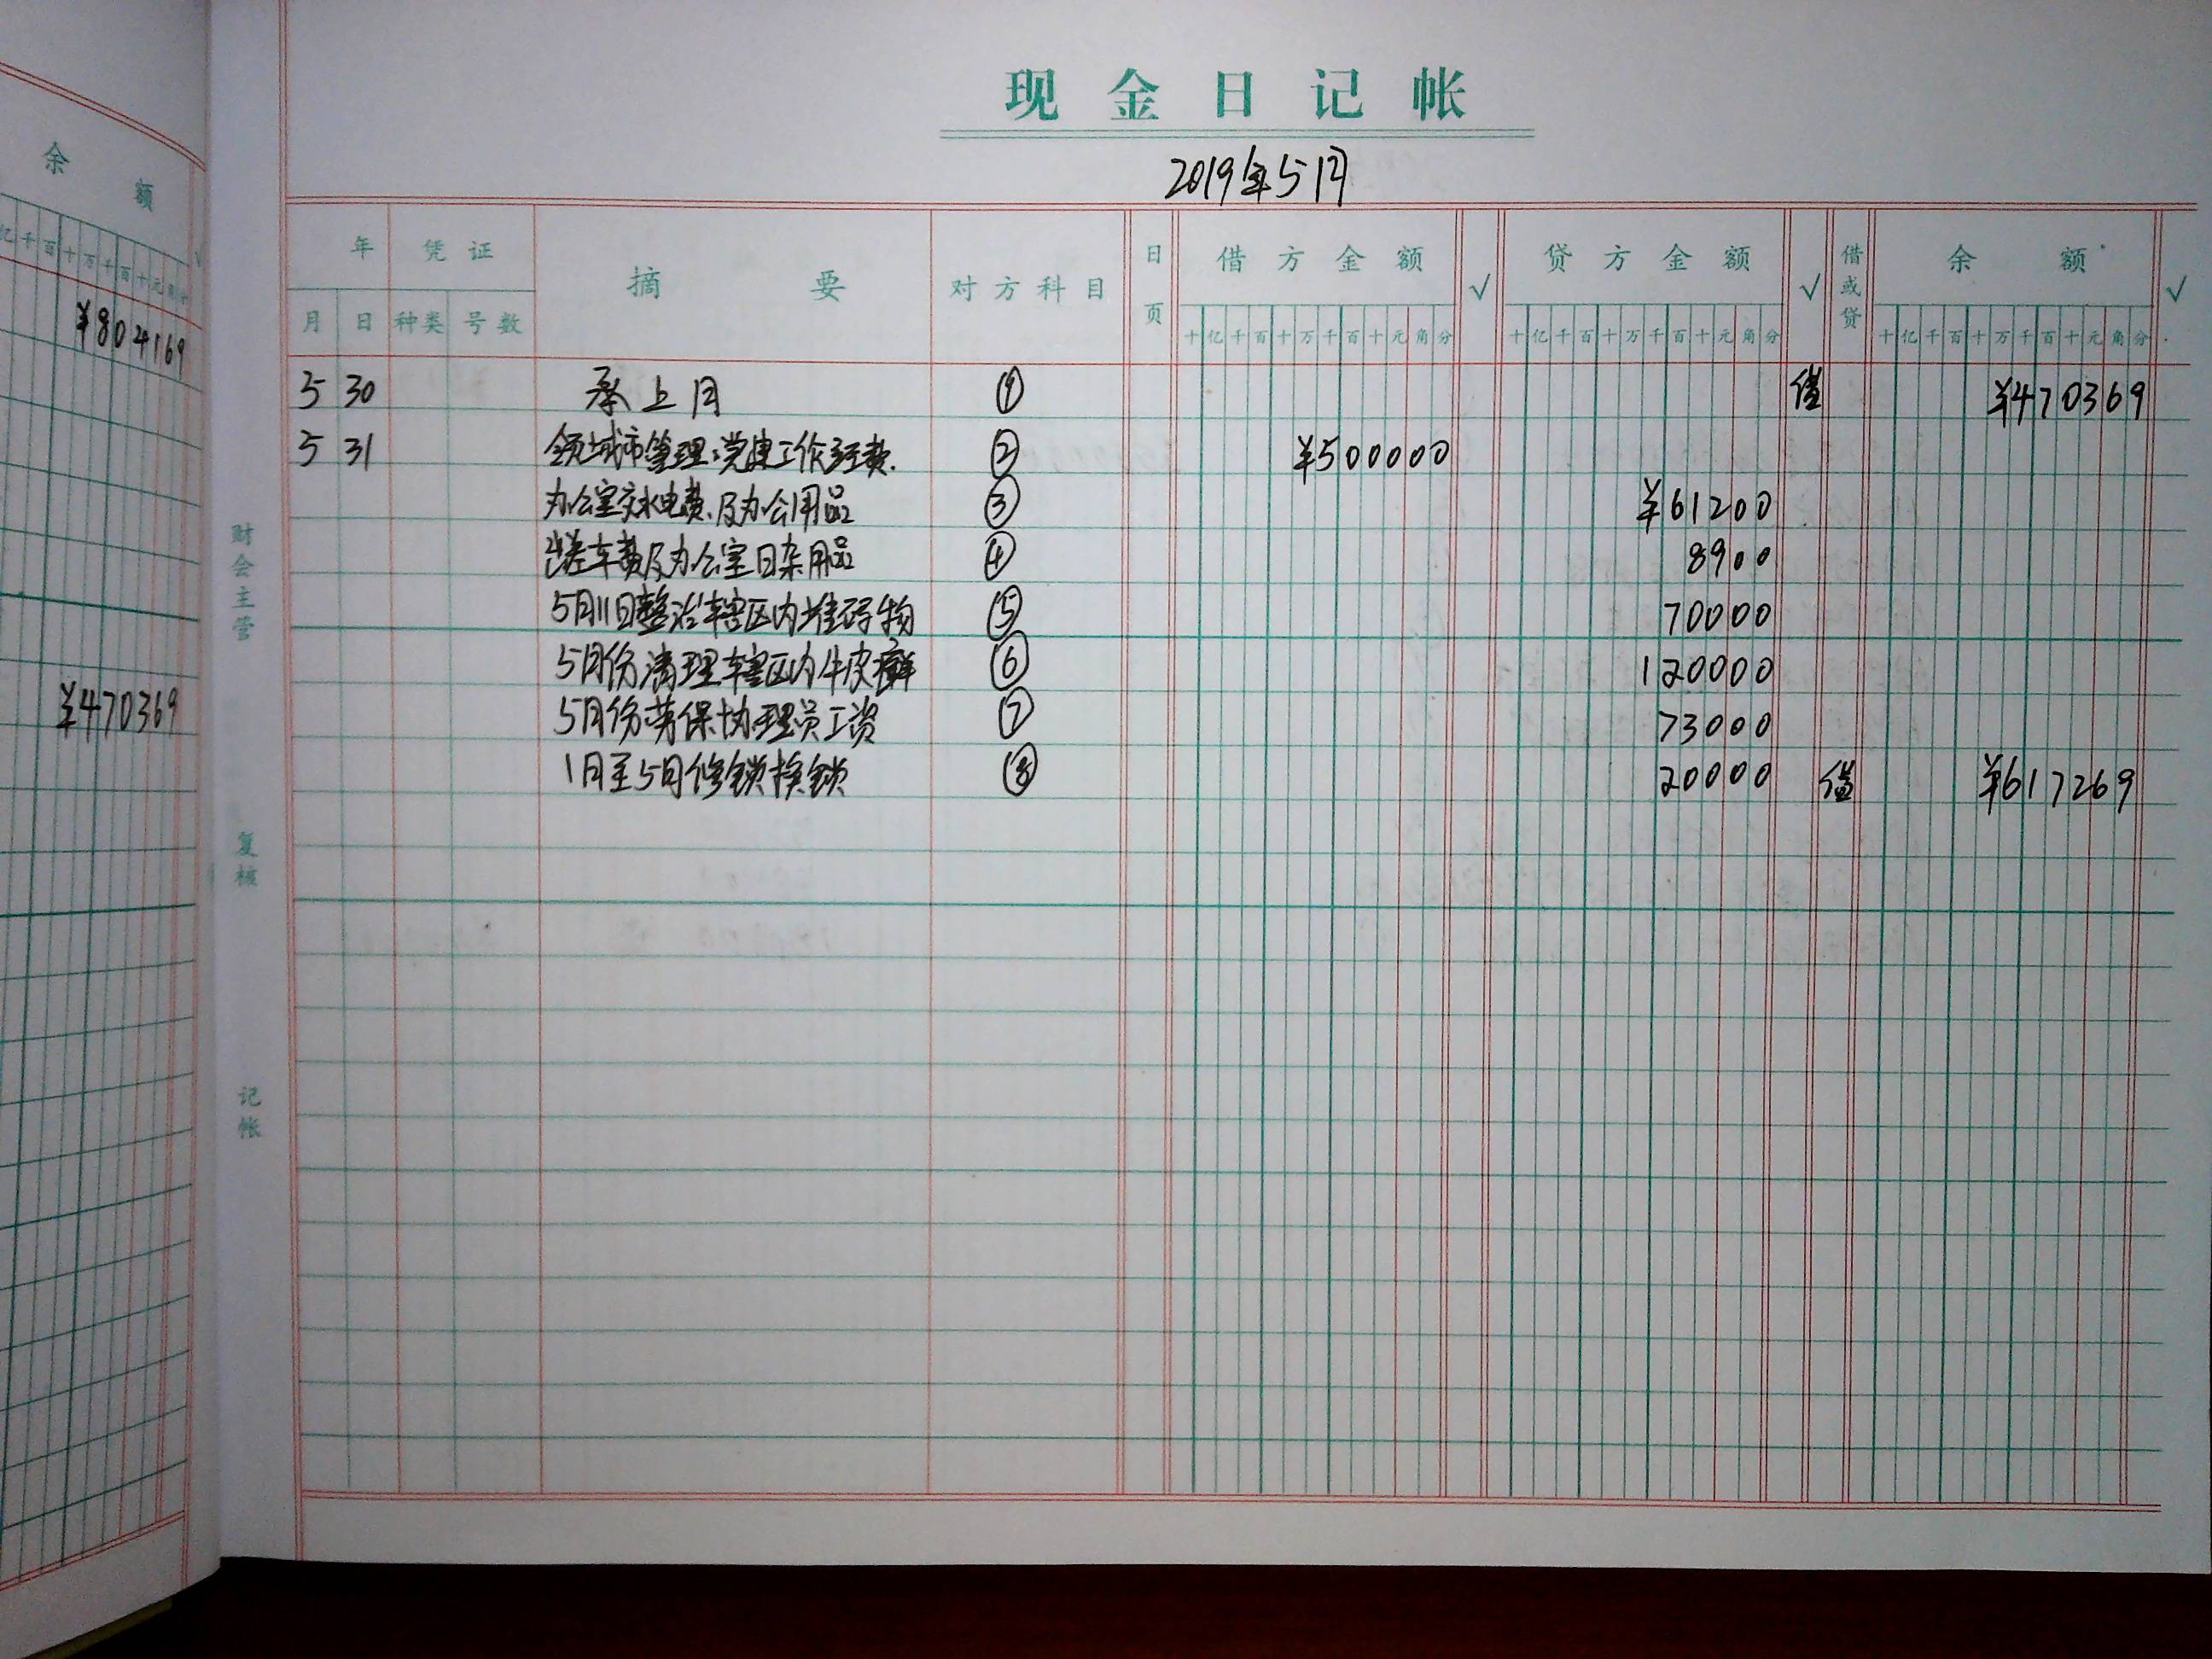 余 额
亿 千 百 十 万 千 百 十 元 角 分 √
¥804169
¥470369
财会主管
复核
记帐
现金日记帐
2019年5月
年 凭证 摘要 对方科目 日页 借方金额 √ 贷方金额 √ 借或贷 余额 √
月 日 种类 号数 十亿千百十万千百十元角分 十亿千百十万千百十元角分 十亿千百十万千百十元角分
5 30 承上月 ① 借 ¥470369
5 31 领城市管理、党建工作经费. ② ¥500000
办公室交水电费、及办公用品 ③ ¥61200
出差车费及办公室日杂用品 ④ 8900
5月11日整治辖区内堆码物 ⑤ 70000
5月份清理辖区内牛皮癣 ⑥ 120000
5月份劳保协理员工资 ⑦ 73000
1月至5月修锁换锁 ⑧ 20000 借 ¥617269